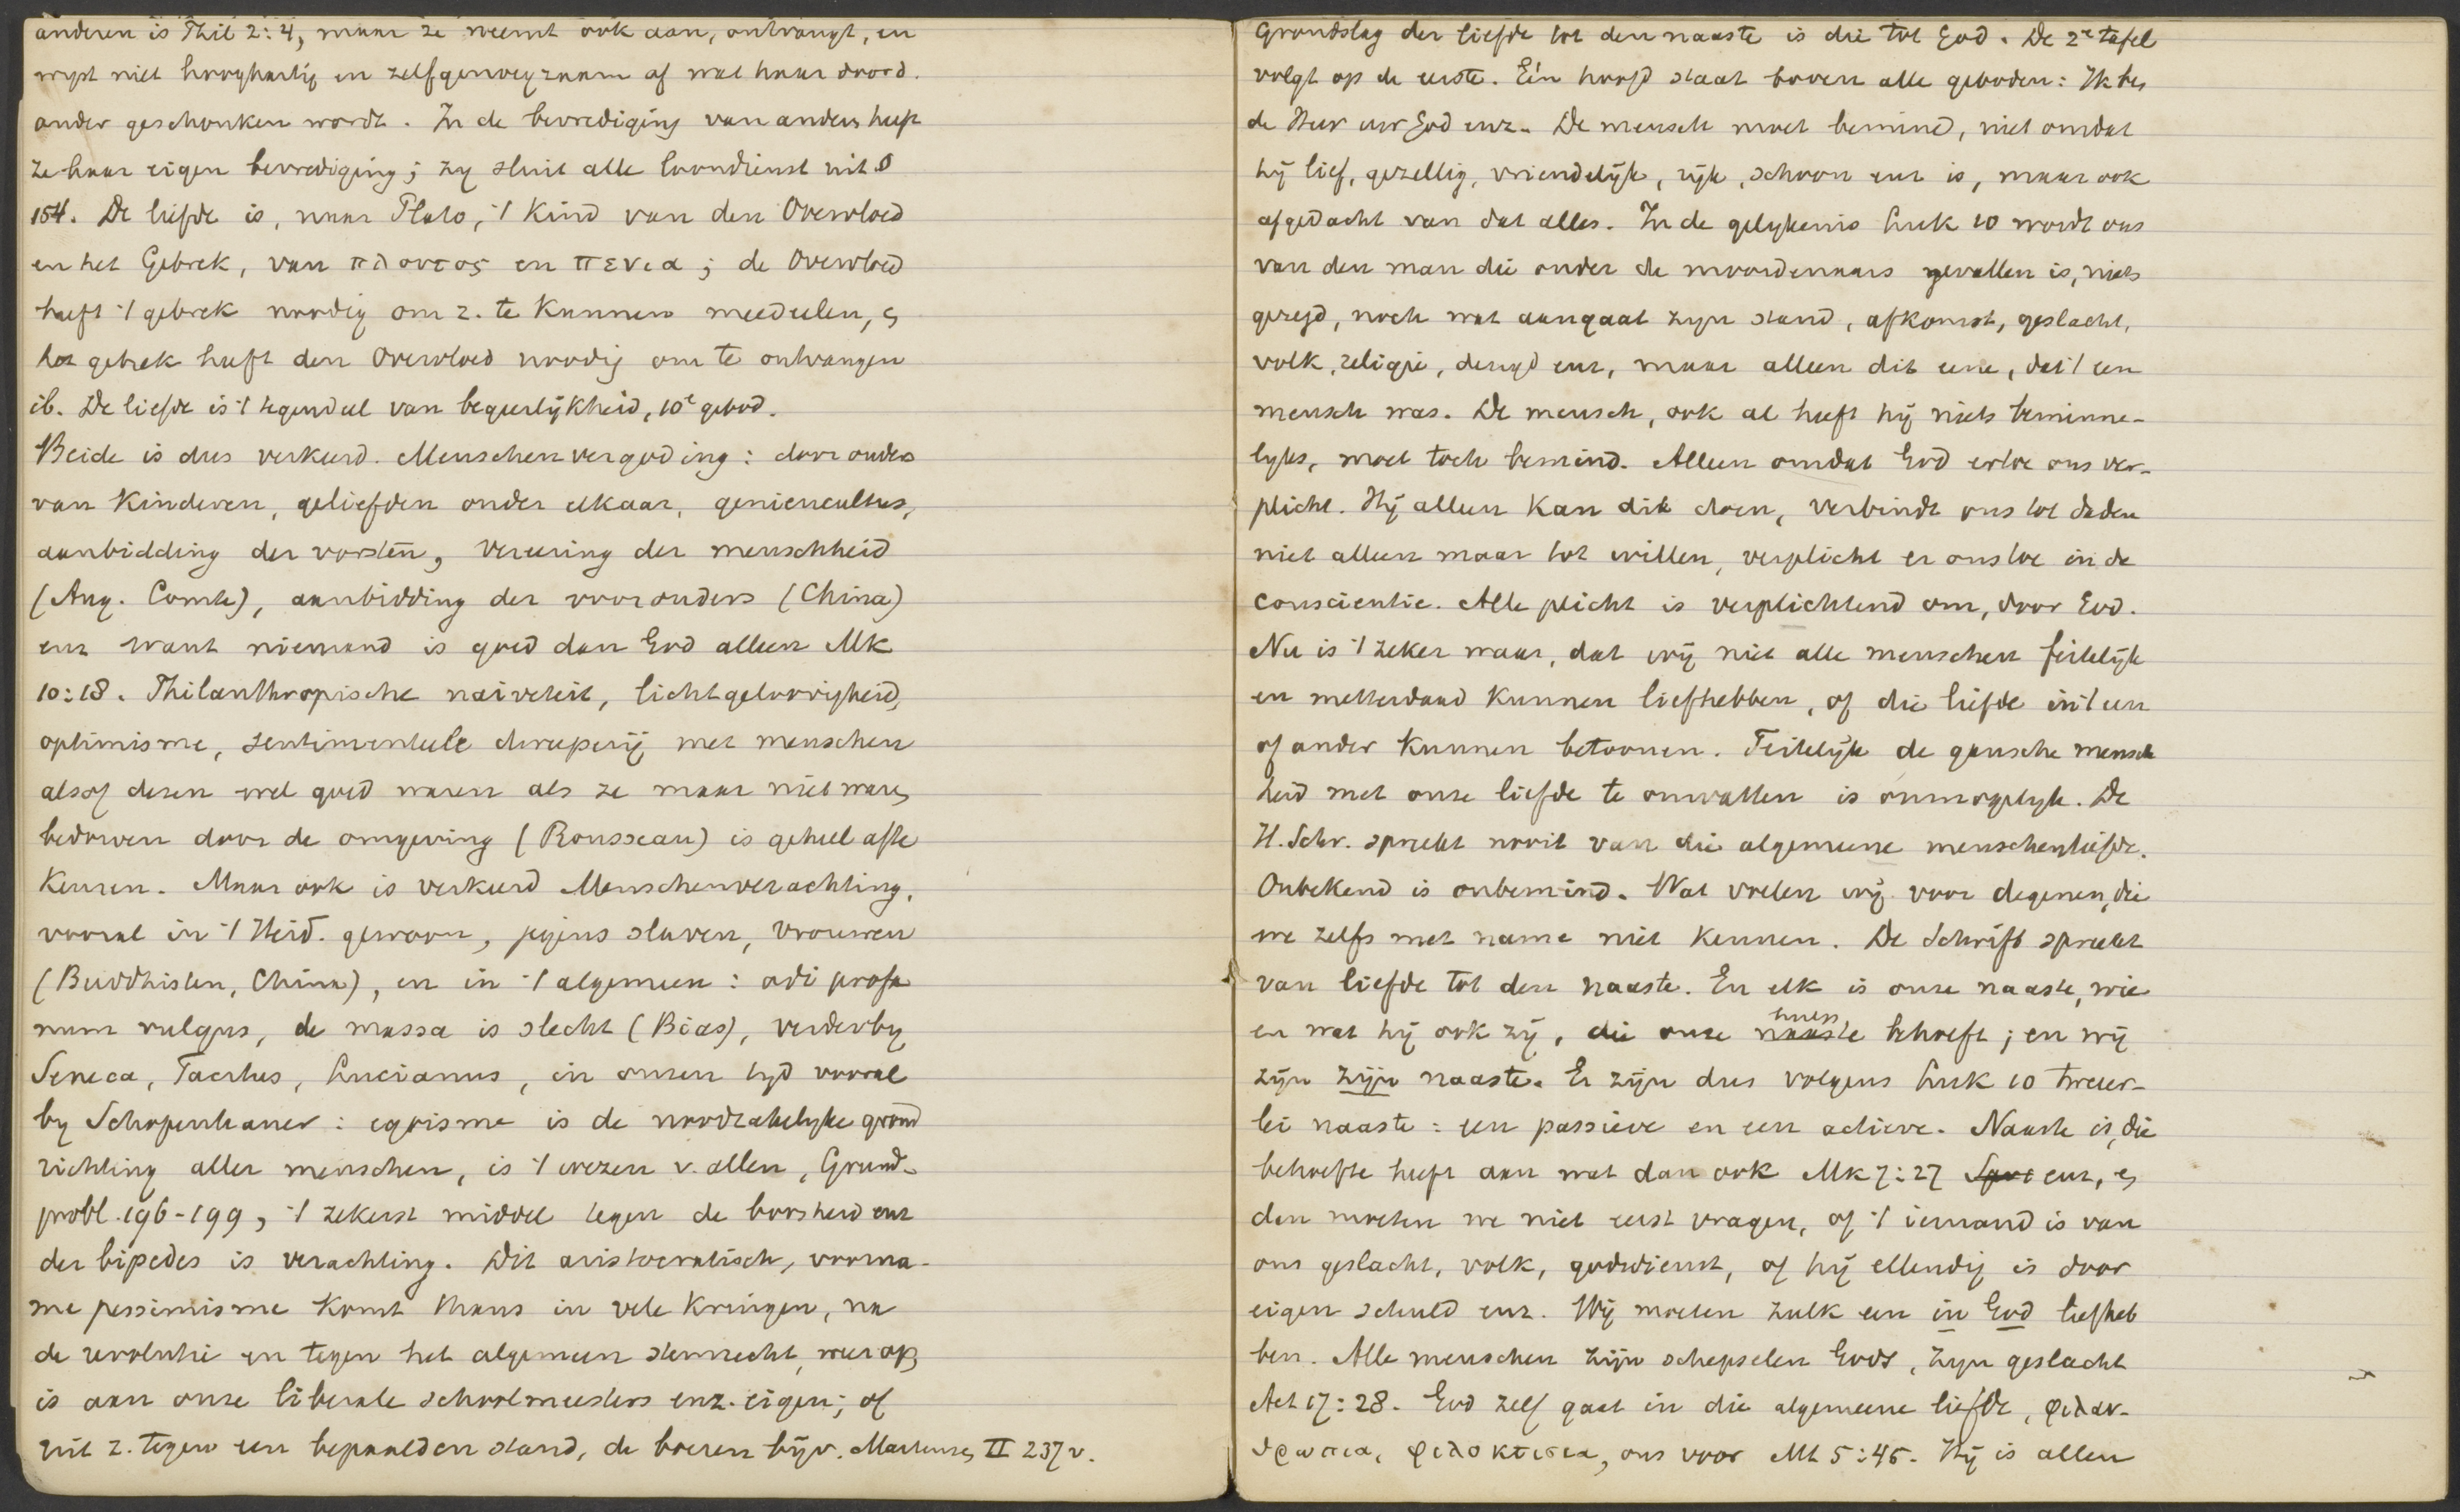 anderen is Phil 2:4, maar ze neemt ook aan, ontvangt, en
wyst niet hooghartig en zelfgenoegzaam af wat haar doord.
ander geschonken wordt. In de bevrediging van anders heeft
ze haar eigen bevrediging; zy sluit alle loondienst uit
154. De liefde is, naar Plato, 't Kind van den Overvloed
en het Gebrek, van πλουτος en πενια; de Overvloed
heeft 't gebrek noodig om z. te Kunnen meedeelen, en
het gebrek heeft den Overvloed noodig om te ontvangen
ib. De liefde is 't tegendeel van begeerlijkheid, 10e gebod.
Beide is dus verkeerd. Menschenvergoding: door ouders
van Kinderen, geliefden onder elkaar, geniencultus,
aanbidding der vorsten, vereering der menschheid
(Aug. Comte), aanbidding der voorouders (China)
enz want niemand is goed dan God alleen Mk
10:18. Philanthropische naiveteit, lichtgeloovigheid,
optimisme, sentimenteele dweeperij met menschen
alsof dezen wel goed waren als ze maar niet waren
bedorven door de omgeving (Rousseau) is geheel af te
Keuren. Maar ook is verkeerd Menschenverachting,
vooral in 't Heid. gewoon, jegens slaven, vrouwen
(Buddhisten, China), en in 't algemeen: odi profa
num vulgus, de massa is slecht (Bias), verder by
Seneca, Tacitus, Lucianus, in onzen tyd vooral
by Schopenhauer: egoisme is de noodzakelyke grond
richting aller menschen, is 't wezen v. allen, Grund-
probl. 196-199, 't zekerst middel tegen de boosheid enz
der bipedes is verachting. Dit aristocratisch, voorna-
me pessimisme Komt thans in vele Kringen, na
de revolutie en tegen het algemeen stemrecht, weer op,
is aan onze liberale schoolmeesters enz. eigen; of
uit z. tegen een bepaalden stand, de boeren bijv. Martensen II 237 v.
Grondslag der liefde tot den naaste is die tot God. De 2e tafel
volgt op de eerste. Eén hoofd staat boven alle geboden: Ik ben
de Heer uw God enz. De mensch moet bemind, niet omdat
hij lief, gezellig, vriendelijk, rijk, schoon enz is, maar ook
afgedacht van dat alles. In de gelykenis Luk 10 wordt ons
van den man die onder de moordenaars gevallen is, niets
gezegd, noch wat aangaat zyn stand, afkomst, geslacht,
volk, religie, deugd enz, maar alleen dit eene, dat 't een
mensch was. De mensch, ook al heeft hij niets beminne-
lyks, moet toch bemind. Alleen omdat God ertoe ons ver-
plicht. Hij alleen Kan dit doen, verbindt ons tot daden
niet alleen maar tot willen, verplicht er ons toe in de
conscientie. Alle plicht is verplichtend om, door God.
Nu is 't zeker waar, dat wij niet alle menschen feitelijk
en metterdaad Kunnen liefhebben, of die liefde in 't een
of ander Kunnen betoonen. Feitelijk de gansche mensch
heid met onze liefde te omvatten is onmogelyk. De
H. Schr. spreekt nooit van die algemeene menschenliefde.
Onbekend is onbemind. Wat voelen wij voor degenen, die
we zelfs met name niet Kennen. De Schrift spreekt
van liefde tot den naaste. En elk is onze naaste, wie
en wat hij ook zij, die onze hulp naaste behoeft; en wij
zijn zijn naaste. Er zijn dus volgens Luk 10 tweeër-
lei naaste: een passieve en een actieve. Naaste is, die
behoefte heeft aan wat dan ook Mk 7:27 enz, en
dan moeten we niet eerst vragen, of 't iemand is van
ons geslacht, volk, godsdienst, of hij ellendig is door
eigen schuld enz. Wij moeten zulk een in God liefheb
ben. Alle menschen zijn schepselen Gods, zyn geslacht
Act 17:28. God zelf gaat in die algemeene liefde, φιλαν-
θρωπια, φιλοκτισια, ons voor Mt 5:45. Hij is allen